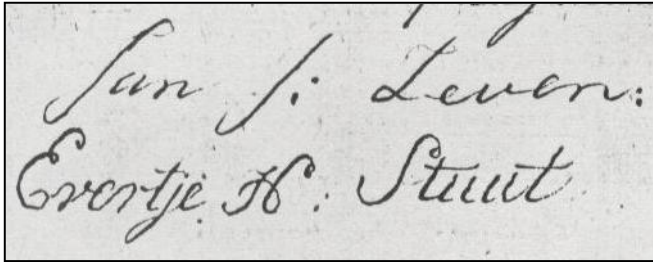 Jan J: Leven:
Evertje H. Stuut